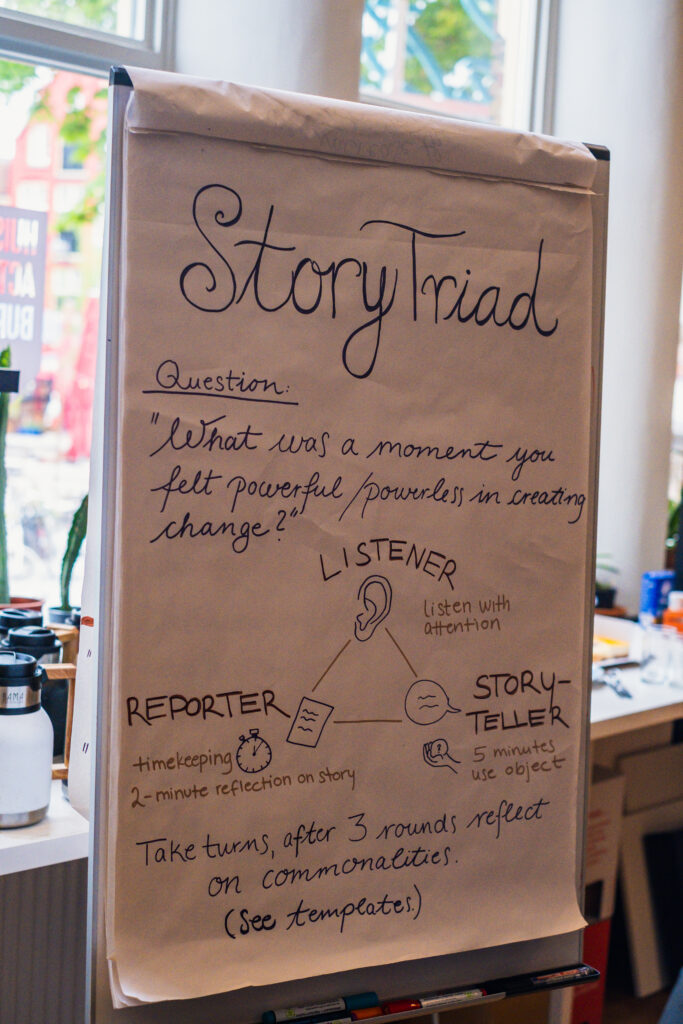 StoryTriad
Question:
"What was a moment you
felt powerful/powerless in creating
change?"
LISTENER
listen with
attention
REPORTER
timekeeping
2-minute reflection on story
STORY-
TELLER
5 minutes
use object
Take turns, after 3 rounds reflect
on commonalities.
(See templates.)
HUIS
ACT
BUR